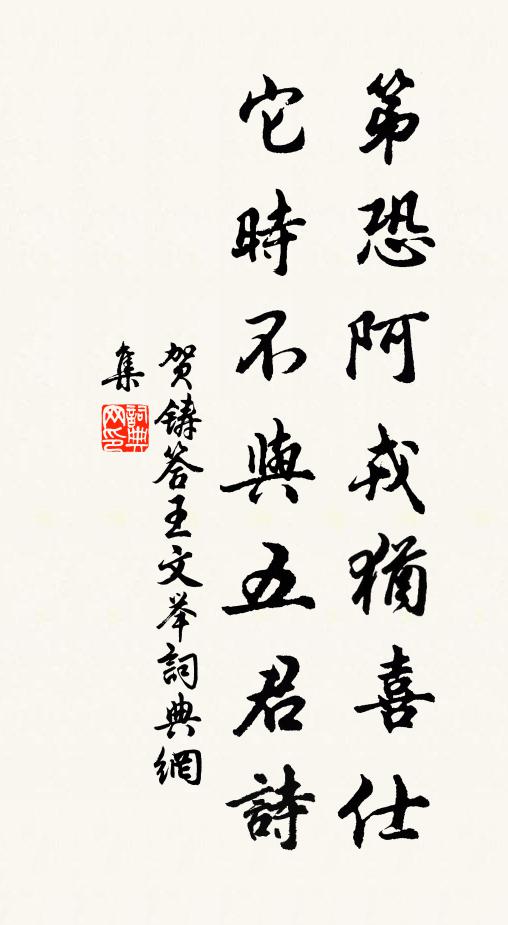 第恐阿戎猶喜仕
它時不與五君詩
贺鑄答王文举詞典網
集
詞典网印